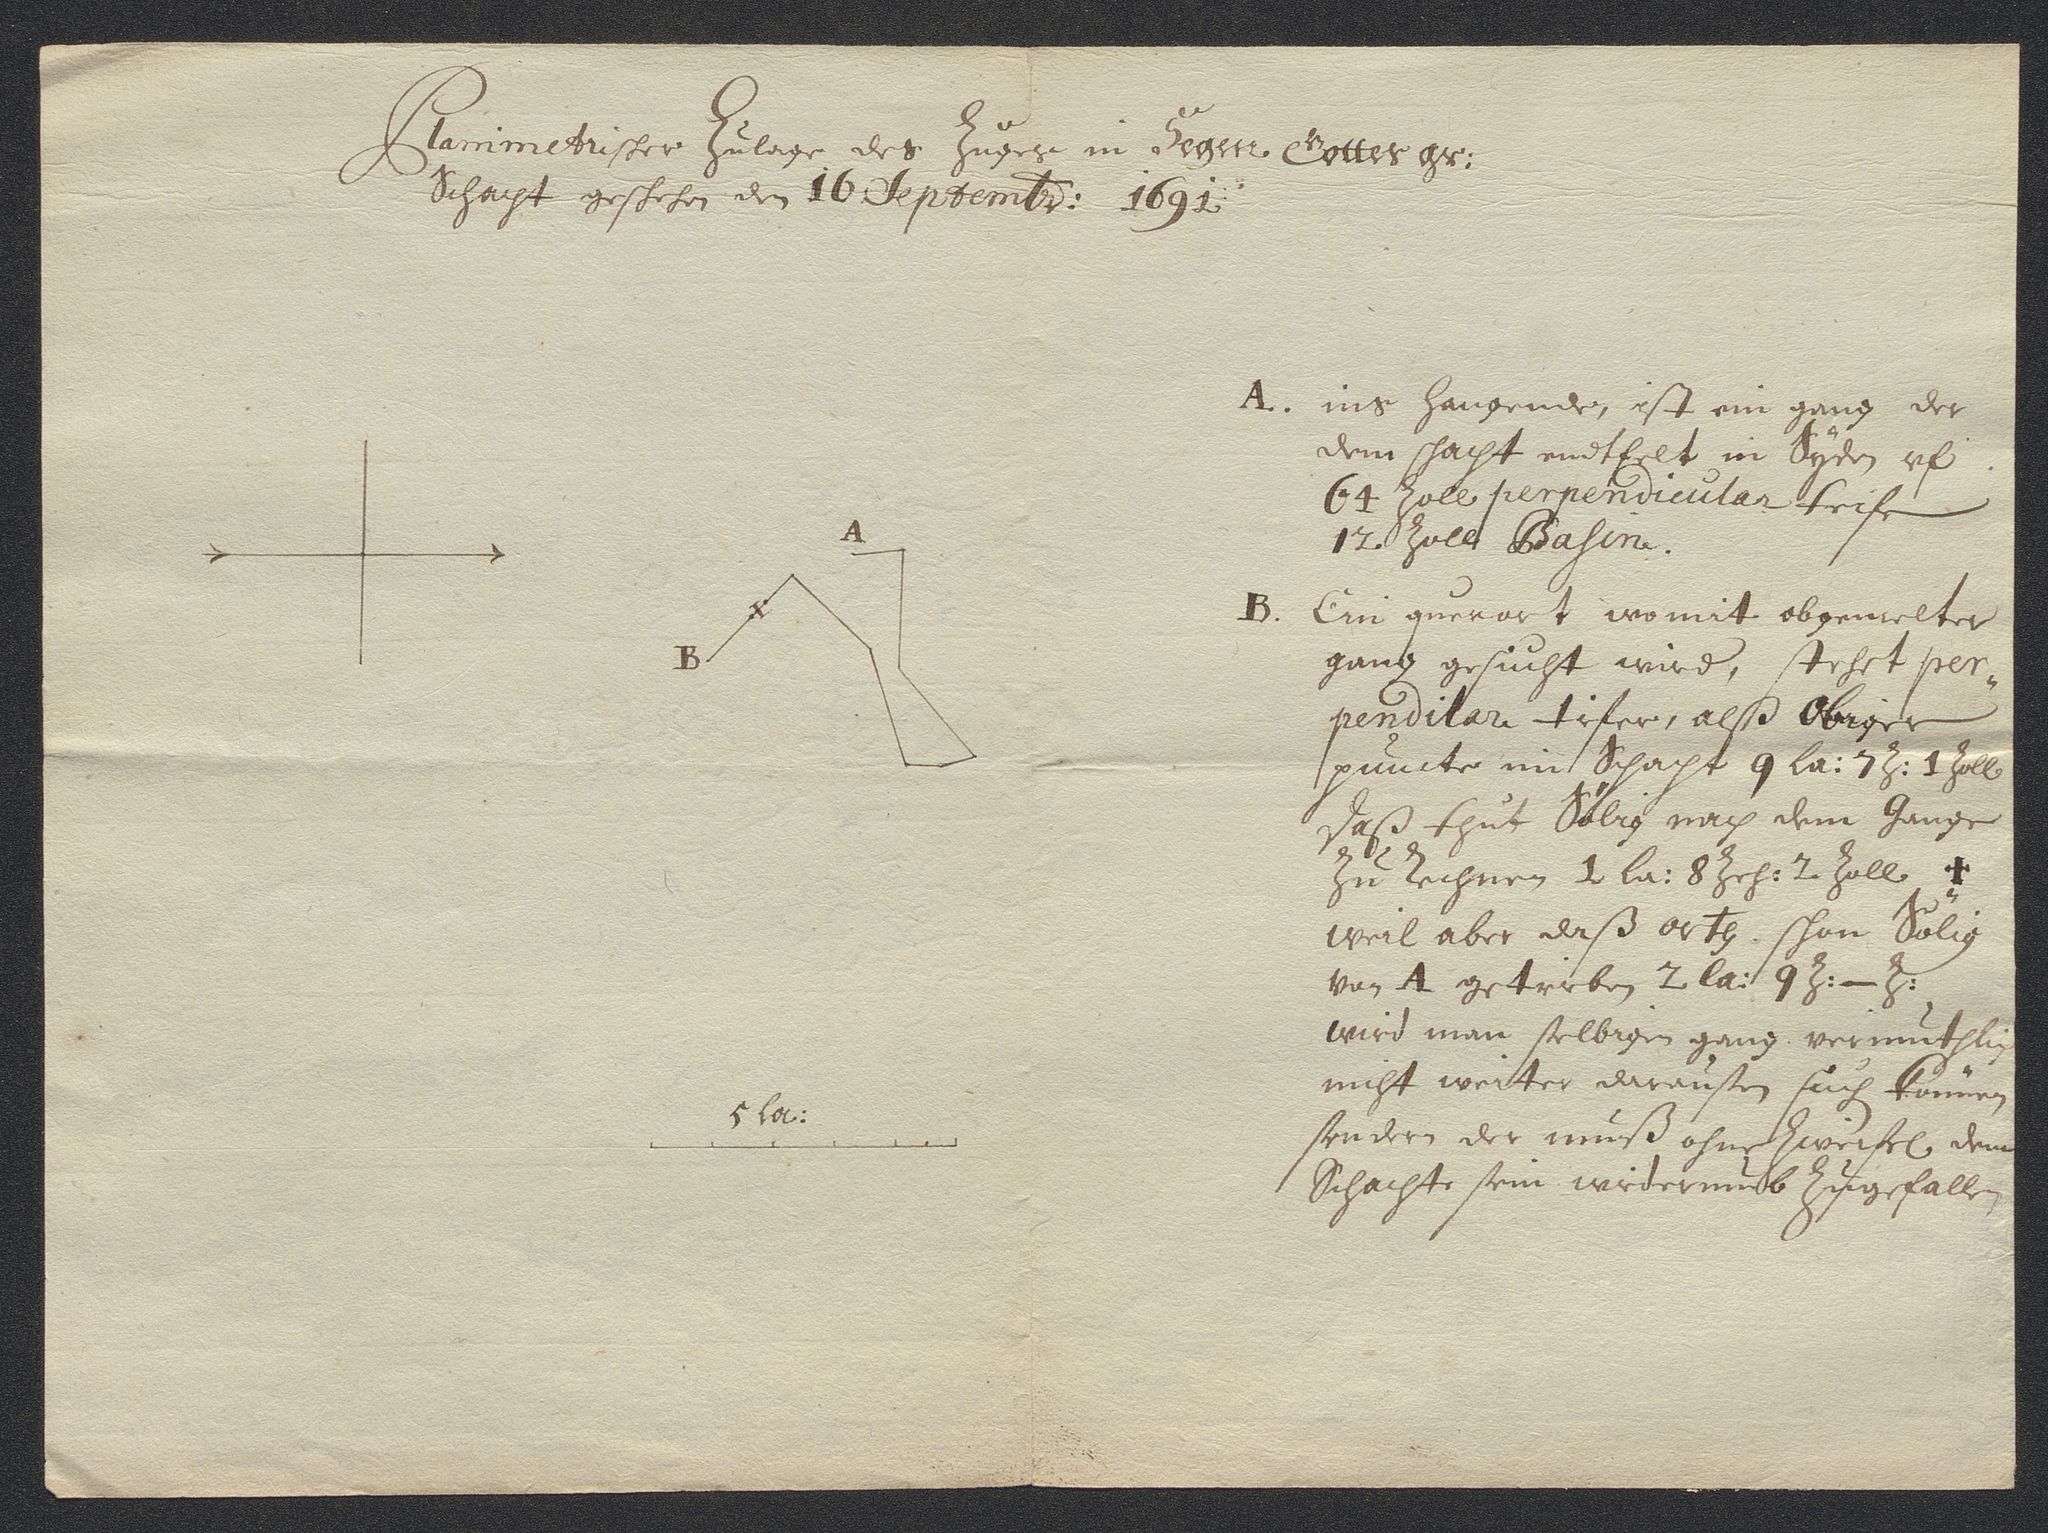 Planimetrischer Zulage des Zuges in Segen Gottes gr:
Schacht geschehen den 16 Septembr: 1691
A. ins hangende, ist ein gang der
dem schacht endtfelt in Süden uf
64 Zoll perpendicular teife
12 Zoll Basin.
B. Ein querort womit obgemelter
gang gesucht wird, stehet per-
pendilar tifer, alß Obiger
puncte im Schacht 9 la: 7 Z: 1 Zoll
daß thut Sölig nach dem Gange
Zu Rechnen 1 la: 8 Zeh: 2 Zoll +
weil aber daß orth schon Sölig
von A getrieben 2 la: 9 Z: — Z:
wird man selbigen gang vermuthlich
nicht weiter daraussen such können
sondern der muß ohne Zweifel dem
Schachte sein widerumb Zugefallen
A
x
B
5 la: